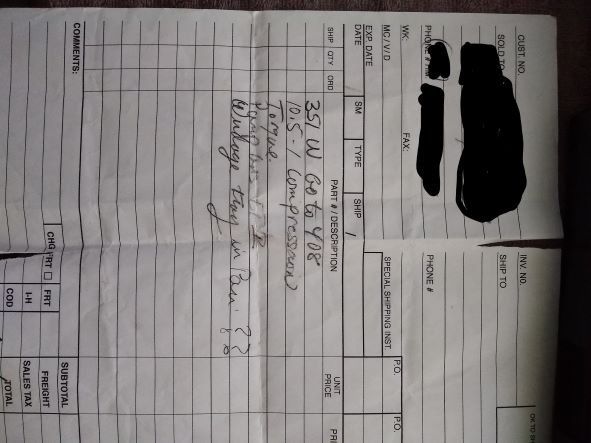 CUST. NO.
INV. NO.
SOLD TO
SHIP TO
OK TO
PHONE #
PHONE #
WK:
FAX:
MC / V / D
SPECIAL SHIPPING INST.
P.O.
P.O.
EXP. DATE
DATE
SM
TYPE
SHIP
SHIP
QTY
ORD
PART # / DESCRIPTION
UNIT PRICE
351 W Go to 408
10.5-1 Compression?
Torque.
Windage tray in Pan. ??
COMMENTS:
CHG FRT
FRT
I-H
COD
SUBTOTAL
FREIGHT
SALES TAX
TOTAL